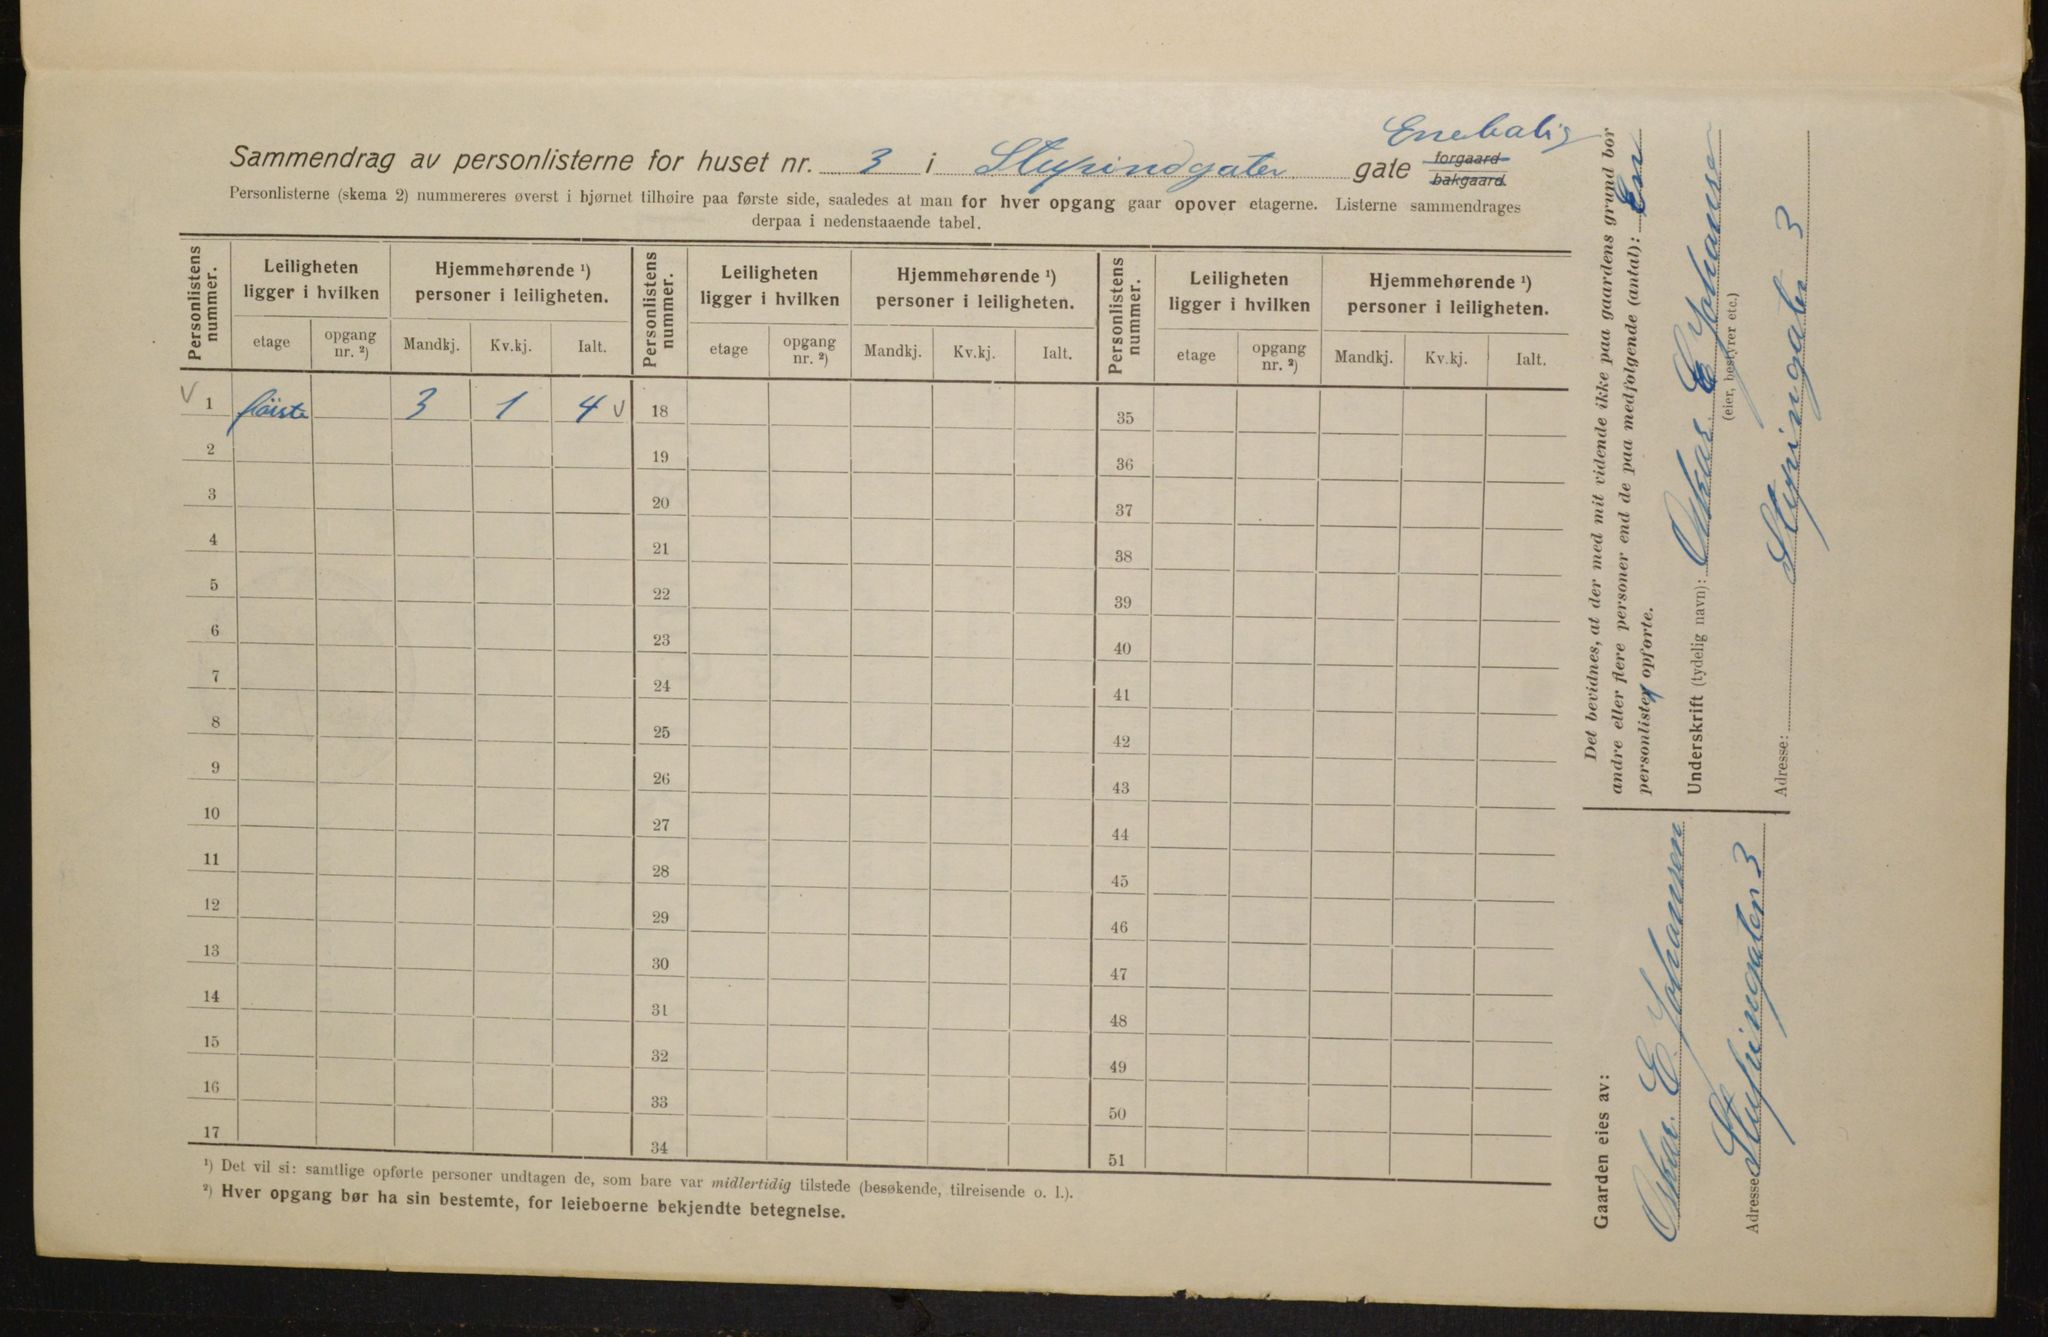 Enebolig
Sammendrag av personlisterne for huset nr. 3 i Stupindgaten gate forgaard
bakgaard.
Personlisterne (skema 2) nummereres øverst i hjørnet tilhøire paa første side, saaledes at man for hver opgang gaar opover etagerne. Listerne sammendrages
derpaa i nedenstaaende tabel.
Personlistens nummer. Leiligheten ligger i hvilken Hjemmehørende ¹) personer i leiligheten. Personlistens nummer. Leiligheten ligger i hvilken Hjemmehørende ¹) personer i leiligheten. Personlistens nummer. Leiligheten ligger i hvilken Hjemmehørende ¹) personer i leiligheten.
etage opgang nr. ²) Mandkj. Kv.kj. Ialt. etage opgang nr. ²) Mandkj. Kv.kj. Ialt. etage opgang nr. ²) Mandkj. Kv.kj. Ialt.
V 1 føiste 3 1 4 v 18 35
2 19 36
3 20 37
4 21 38
5 22 39
6 23 40
7 24 41
8 25 42
9 26 43
10 27 44
11 28 45
12 29 46
13 30 47
14 31 48
15 32 49
16 33 50
17 34 51
¹) Det vil si: samtlige opførte personer undtagen de, som bare var midlertidig tilstede (besøkende, tilreisende o. l.).
²) Hver opgang bør ha sin bestemte, for leieboerne bekjendte betegnelse.
Det bevidnes, at der med mit vidende ikke paa gaardens grund bor
andre eller flere personer end de paa medfølgende (antal): En
personlister opførte.
Underskrift (tydelig navn): Oskar E Johansen
(eier, bestyrer etc.)
Adresse: Stupingaten 3
Gaarden eies av:
Oskar E. Johansen
Adresse Stupingaten 3